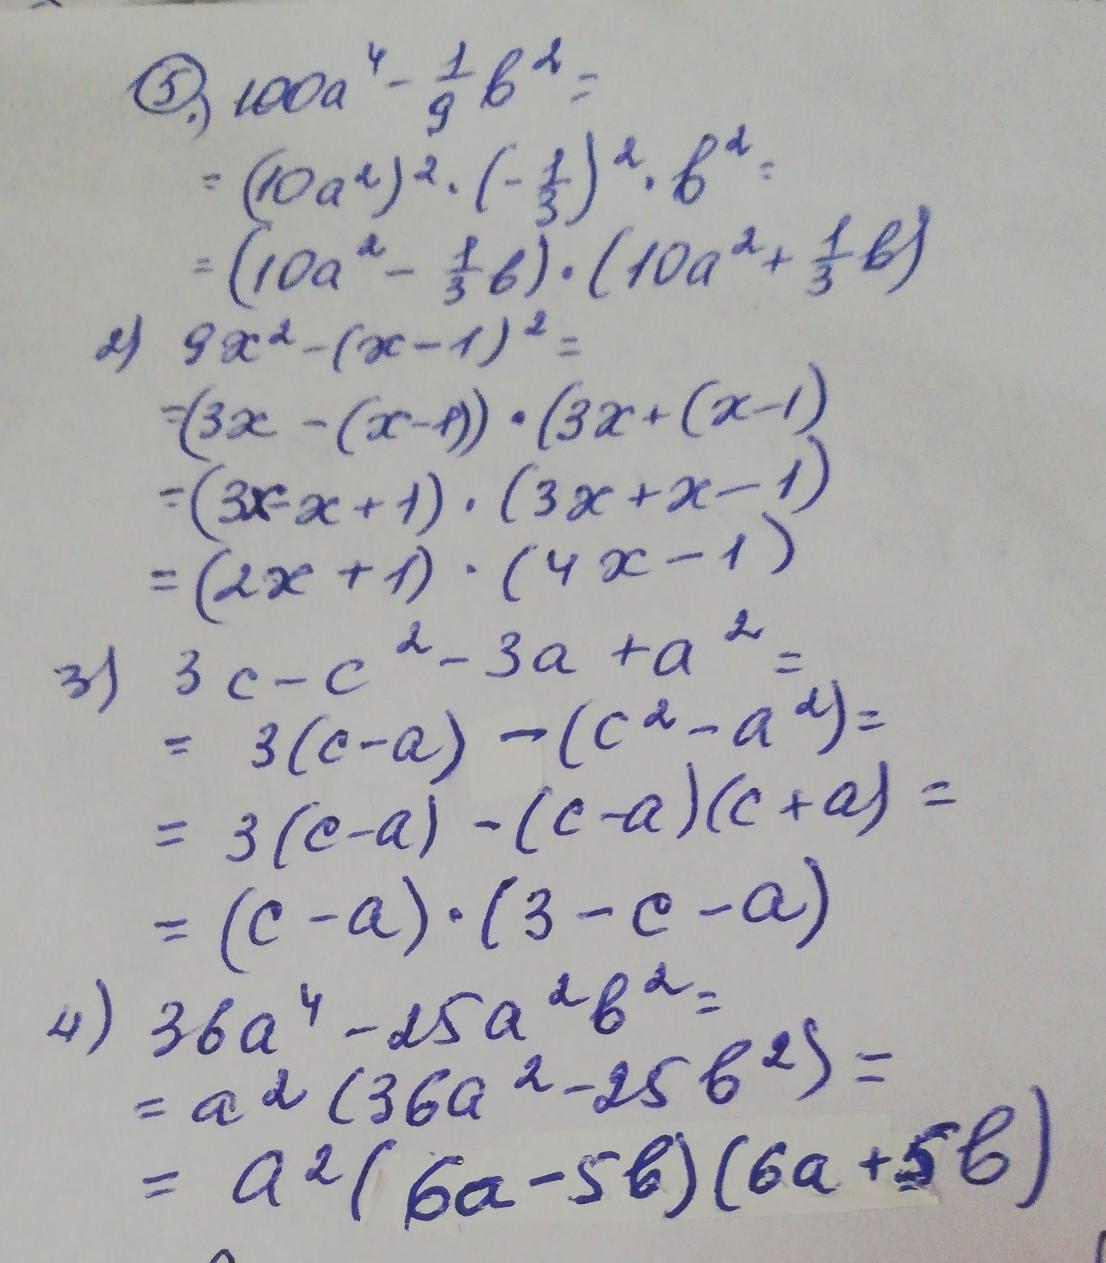 5.) 100a⁴ - 1/9 b² =
= (10a²)² · (-1/3)² · b² =
= (10a² - 1/3 b) · (10a² + 1/3 b)
2) 9x² - (x - 1)² =
= (3x - (x-1)) · (3x + (x-1)
= (3x - x + 1) · (3x + x - 1)
= (2x + 1) · (4x - 1)
3) 3c - c² - 3a + a² =
= 3(c-a) - (c² - a²) =
= 3(c-a) - (c-a)(c+a) =
= (c - a) · (3 - c - a)
4) 36a⁴ - 25a²b² =
= a² (36a² - 25b²) =
= a² (6a - 5b)(6a + 5b)